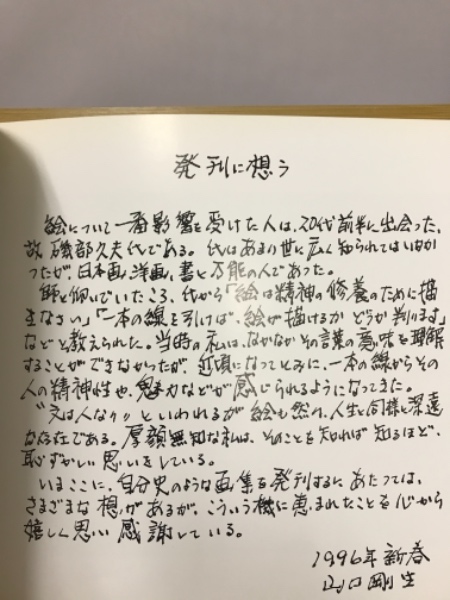 発刊に想う
絵について一番影響を受けた人は、20代前半に出会った、
故 磯部久夫氏である。氏はあまり世に広く知られてはいなか
ったが、日本画、洋画、書と万能の人であった。
師と仰いでいたころ、氏から「絵は精神の修養のために描
きなさい」「一本の線を引けば、絵が描けるかどうか判ります」
などと教えられた。当時の私は、なかなかその言葉の意味を理解
することができなかったが、近頃になってとみに、一本の線からその
人の精神性や、魅力などが感じられるようになってきた。
〝文は人なり〟といわれるが絵も然り、人生と同様に深遠
な存在である。厚顔無知な私は、そのことを知れば知るほど、
恥ずかしい思いをしている。
いまここに、自分史のような画集を発刊するにあたっては、
さまざまな想いがあるが、こういう機に恵まれたことを心から
嬉しく思い感謝している。
1996年 新春
山口剛生